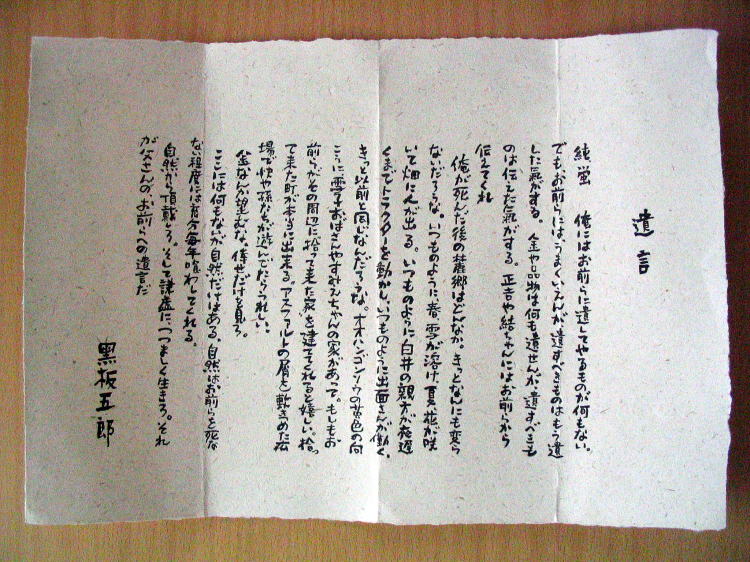 遺言
純、螢　俺にはお前らに遺してやるものが何もない。
でもお前らには、うまくいえんが遺すべきものはもう遺
した氣がする。金や品物は何も遺せんが、遺すべきも
のは伝えた氣がする。正吉や結ちゃんにはお前らから
伝えてくれ
俺が死んだ後の麓郷はどんなか。きっとなんにも変ら
ないだろうな。いつものように春、雪が溶け、夏、花が咲
いて畑に人が出る。いつものように白井の親方が夜遅
くまでトラクターを動かし、いつものように出面さんが働く。
きっと以前と同じなんだろうな。オオハンゴンソウの黄色の向
こうに雪子おばさんやすみえちゃんの家があって。もしもお
前らがその周辺に拾って来た家を建ててくれると嬉しい。拾っ
て来た町が本当に出来る。アスファルトの屑を敷きつめた広
場で快や孫たちが遊んでたらうれしい。
金なんか望むな。倖せだけを見ろ。
ここには何もないが自然だけはある。自然はお前らを死な
ない程度には充分毎年喰わしてくれる。
自然から頂戴しろ。そして謙虚に、つつましく生きろ。それ
が父さんの、お前らへの遺言だ
黒板五郎